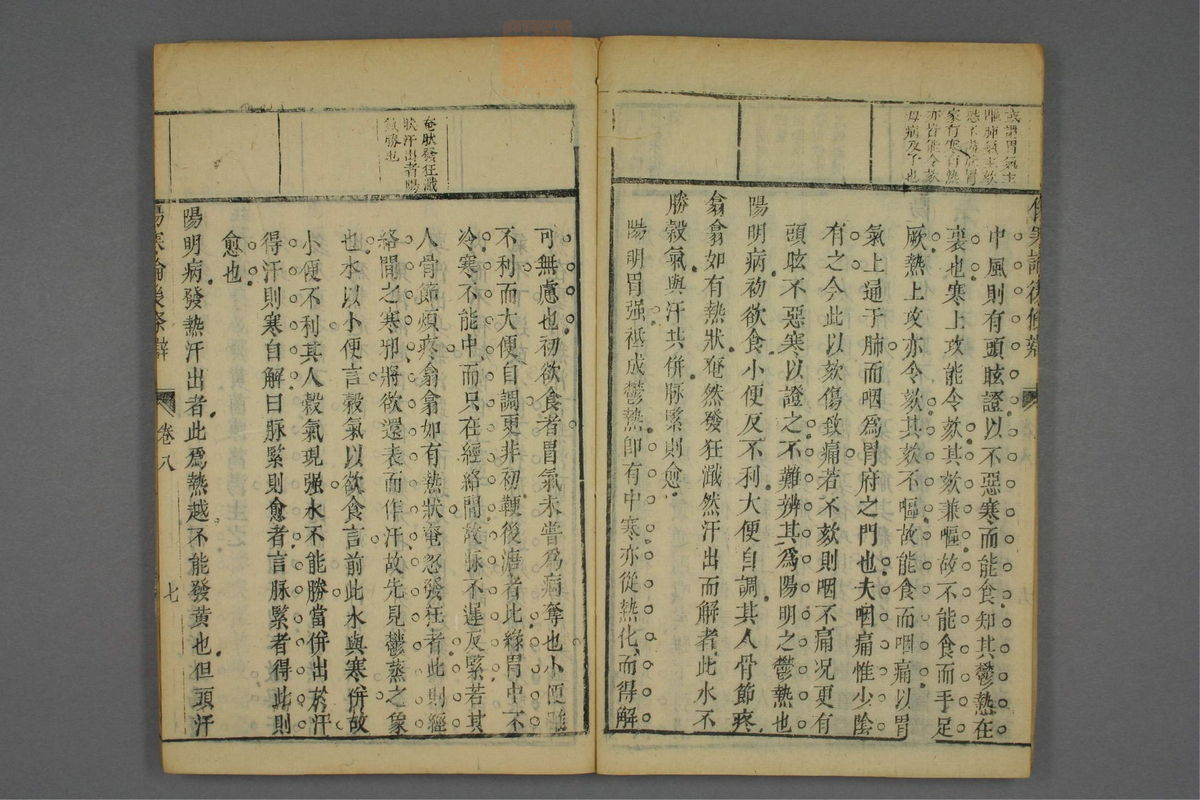 或謂胃氣主
咽肺氣主欬
家有寒有熱
亦皆能令欬
母病及子也
傷寒論後條辨
中風則有頭眩證以不惡寒而能食知其鬱熱在
裏也寒上攻能令欬其欬兼嘔故不能食而手足
厥熱上攻亦令欬其欬不嘔故能食而咽痛以胃
氣上通于肺而咽爲胃府之門也夫咽痛惟少陰
有之今此以欬傷致痛若不欬則咽不痛况更有
頭眩不惡寒以證之不難辨其爲陽明之鬱熱也
陽明病初欲食小便反不利大便自調其人骨節疼
翕翕如有熱狀奄然發狂濈然汗出而解者此水不
勝榖氣與汗共併脉緊則愈
陽明胃强祗成鬱熱卽有中寒亦從熱化而得解
奄狀發狂濈
狀汗出者陽
氣勝也
可無慮也初欲食者胃氣未嘗爲病奪也小便雖
不利而大便自調更非初鞕後溏者比緣胃中不
冷寒不能中而只在經絡間故脉不遲反緊若其
人骨節煩疼翕翕如有熱狀奄忽發狂者此則經
絡間之寒邪將欲還表而作汗故先見鬱蒸之象
也水以小便言榖氣以欲食言前此水與寒併故
小便不利其人榖氣現强水不能勝當併出於汗
得汗則寒自解曰脉緊則愈者言脉緊者得此則
愈也
陽明病發熱汗出者此爲熱越不能發黄也但頭汗
傷寒論後條辨
卷八
七